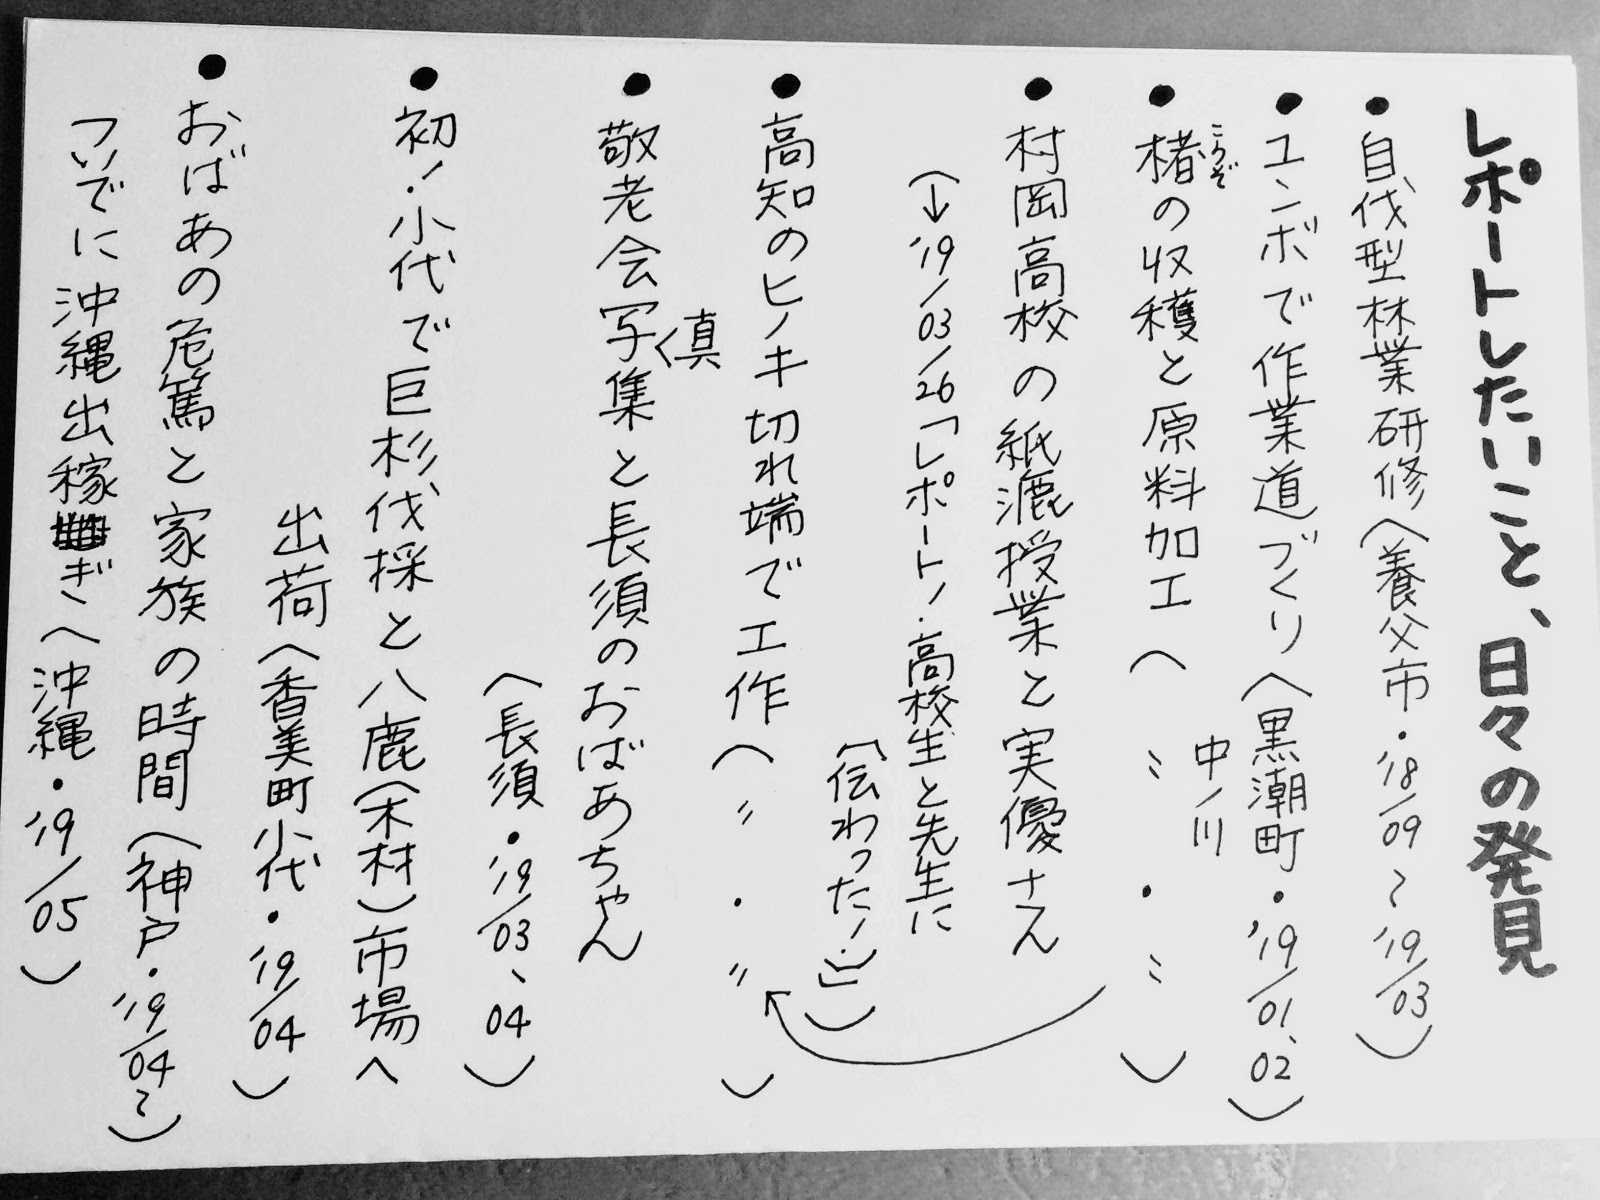 レポートしたいこと、日々の発見
●自伐型林業研修(養父市・'18/09～'19/03)
●ユンボで作業道づくり(黒潮町・'19/01、02)
中ノ川
●楮の収穫と原料加工(〃・〃)
こうぞ
●村岡高校の紙漉授業と実優さん
(→'19/03/26「レポート!・高校生と先生に
(伝わった!)」)
●高知のヒノキ切れ端で工作(〃・〃)
●敬老会写真集と長須のおばあちゃん
(長須・'19/03、04)
●初!小代で巨杉伐採と八鹿(木材)市場へ
出荷(香美町小代・'19/04)
●おばあの危篤と家族の時間(神戸・'19/04～)
ついでに沖縄出稼ぎ(沖縄・'19/05)